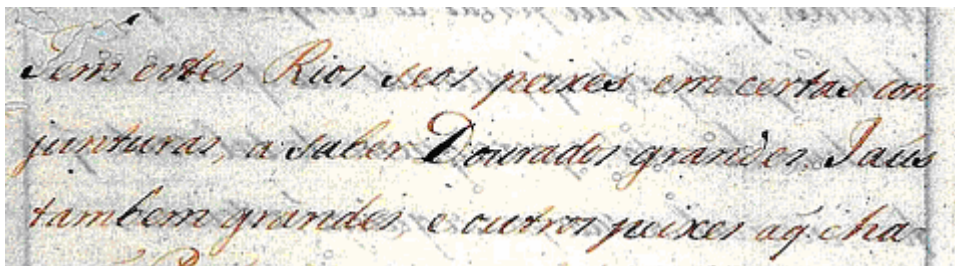 Tem estes Rios seos peixes em certas con-
junturas, a saber Dourados grandes, Jaús
tambem grandes, e outros peixes aq̃ cha-